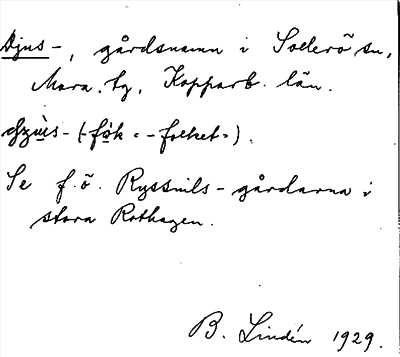 Djus-, gårdsnamn i Sollerö sn,
Mora tg, Kopparb. län.
dz̷ùs- (-fòk = -folket-).
Se f.ö. Ryssnils-gårdarna i
stora Rothagen.
B. Lindén 1929.